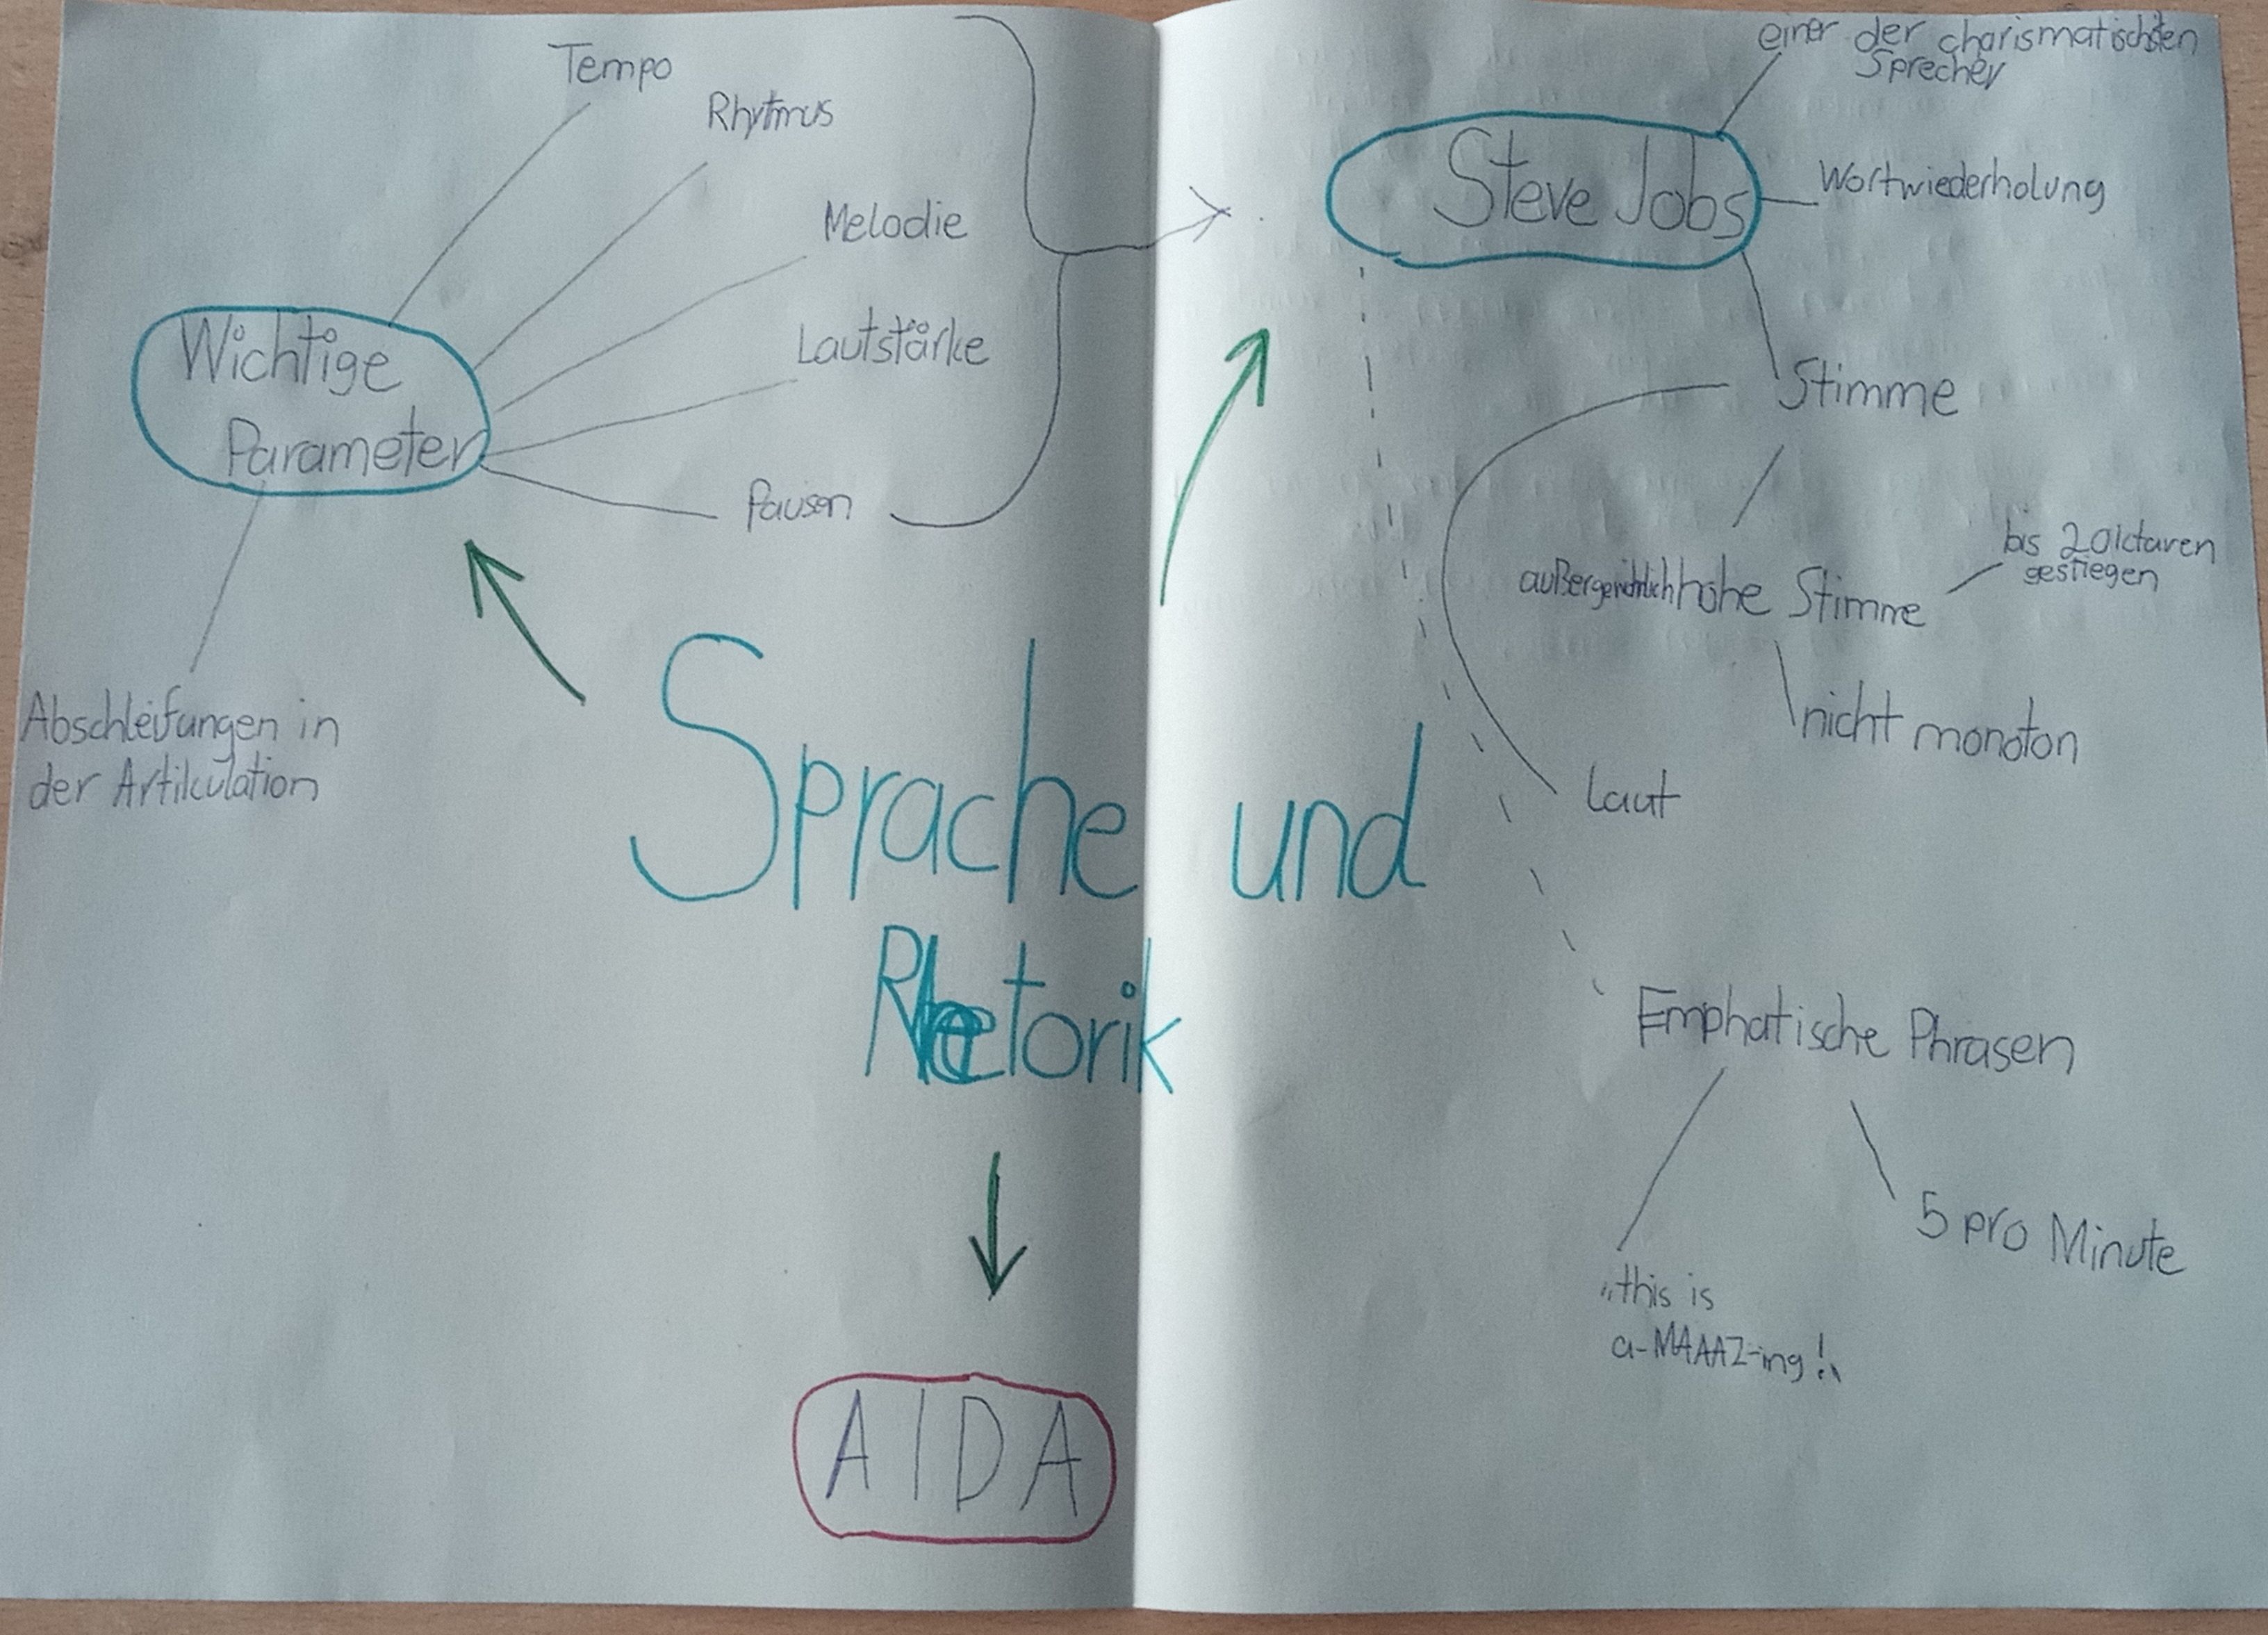 Tempo
Rhytmus
Melodie
Lautstärke
Pausen
Wichtige
Parameter
Abschleifungen in
der Artikulation
einer der charismatischsten
Sprecher
Steve Jobs
Wortwiederholung
Stimme
außergewöhnlich hohe Stimme
bis 2 Oktaven
gestiegen
nicht monoton
Laut
Sprache und
Rhetorik
Emphatische Phrasen
5 pro Minute
„this is
a-MAAAZ-ing!“
AIDA